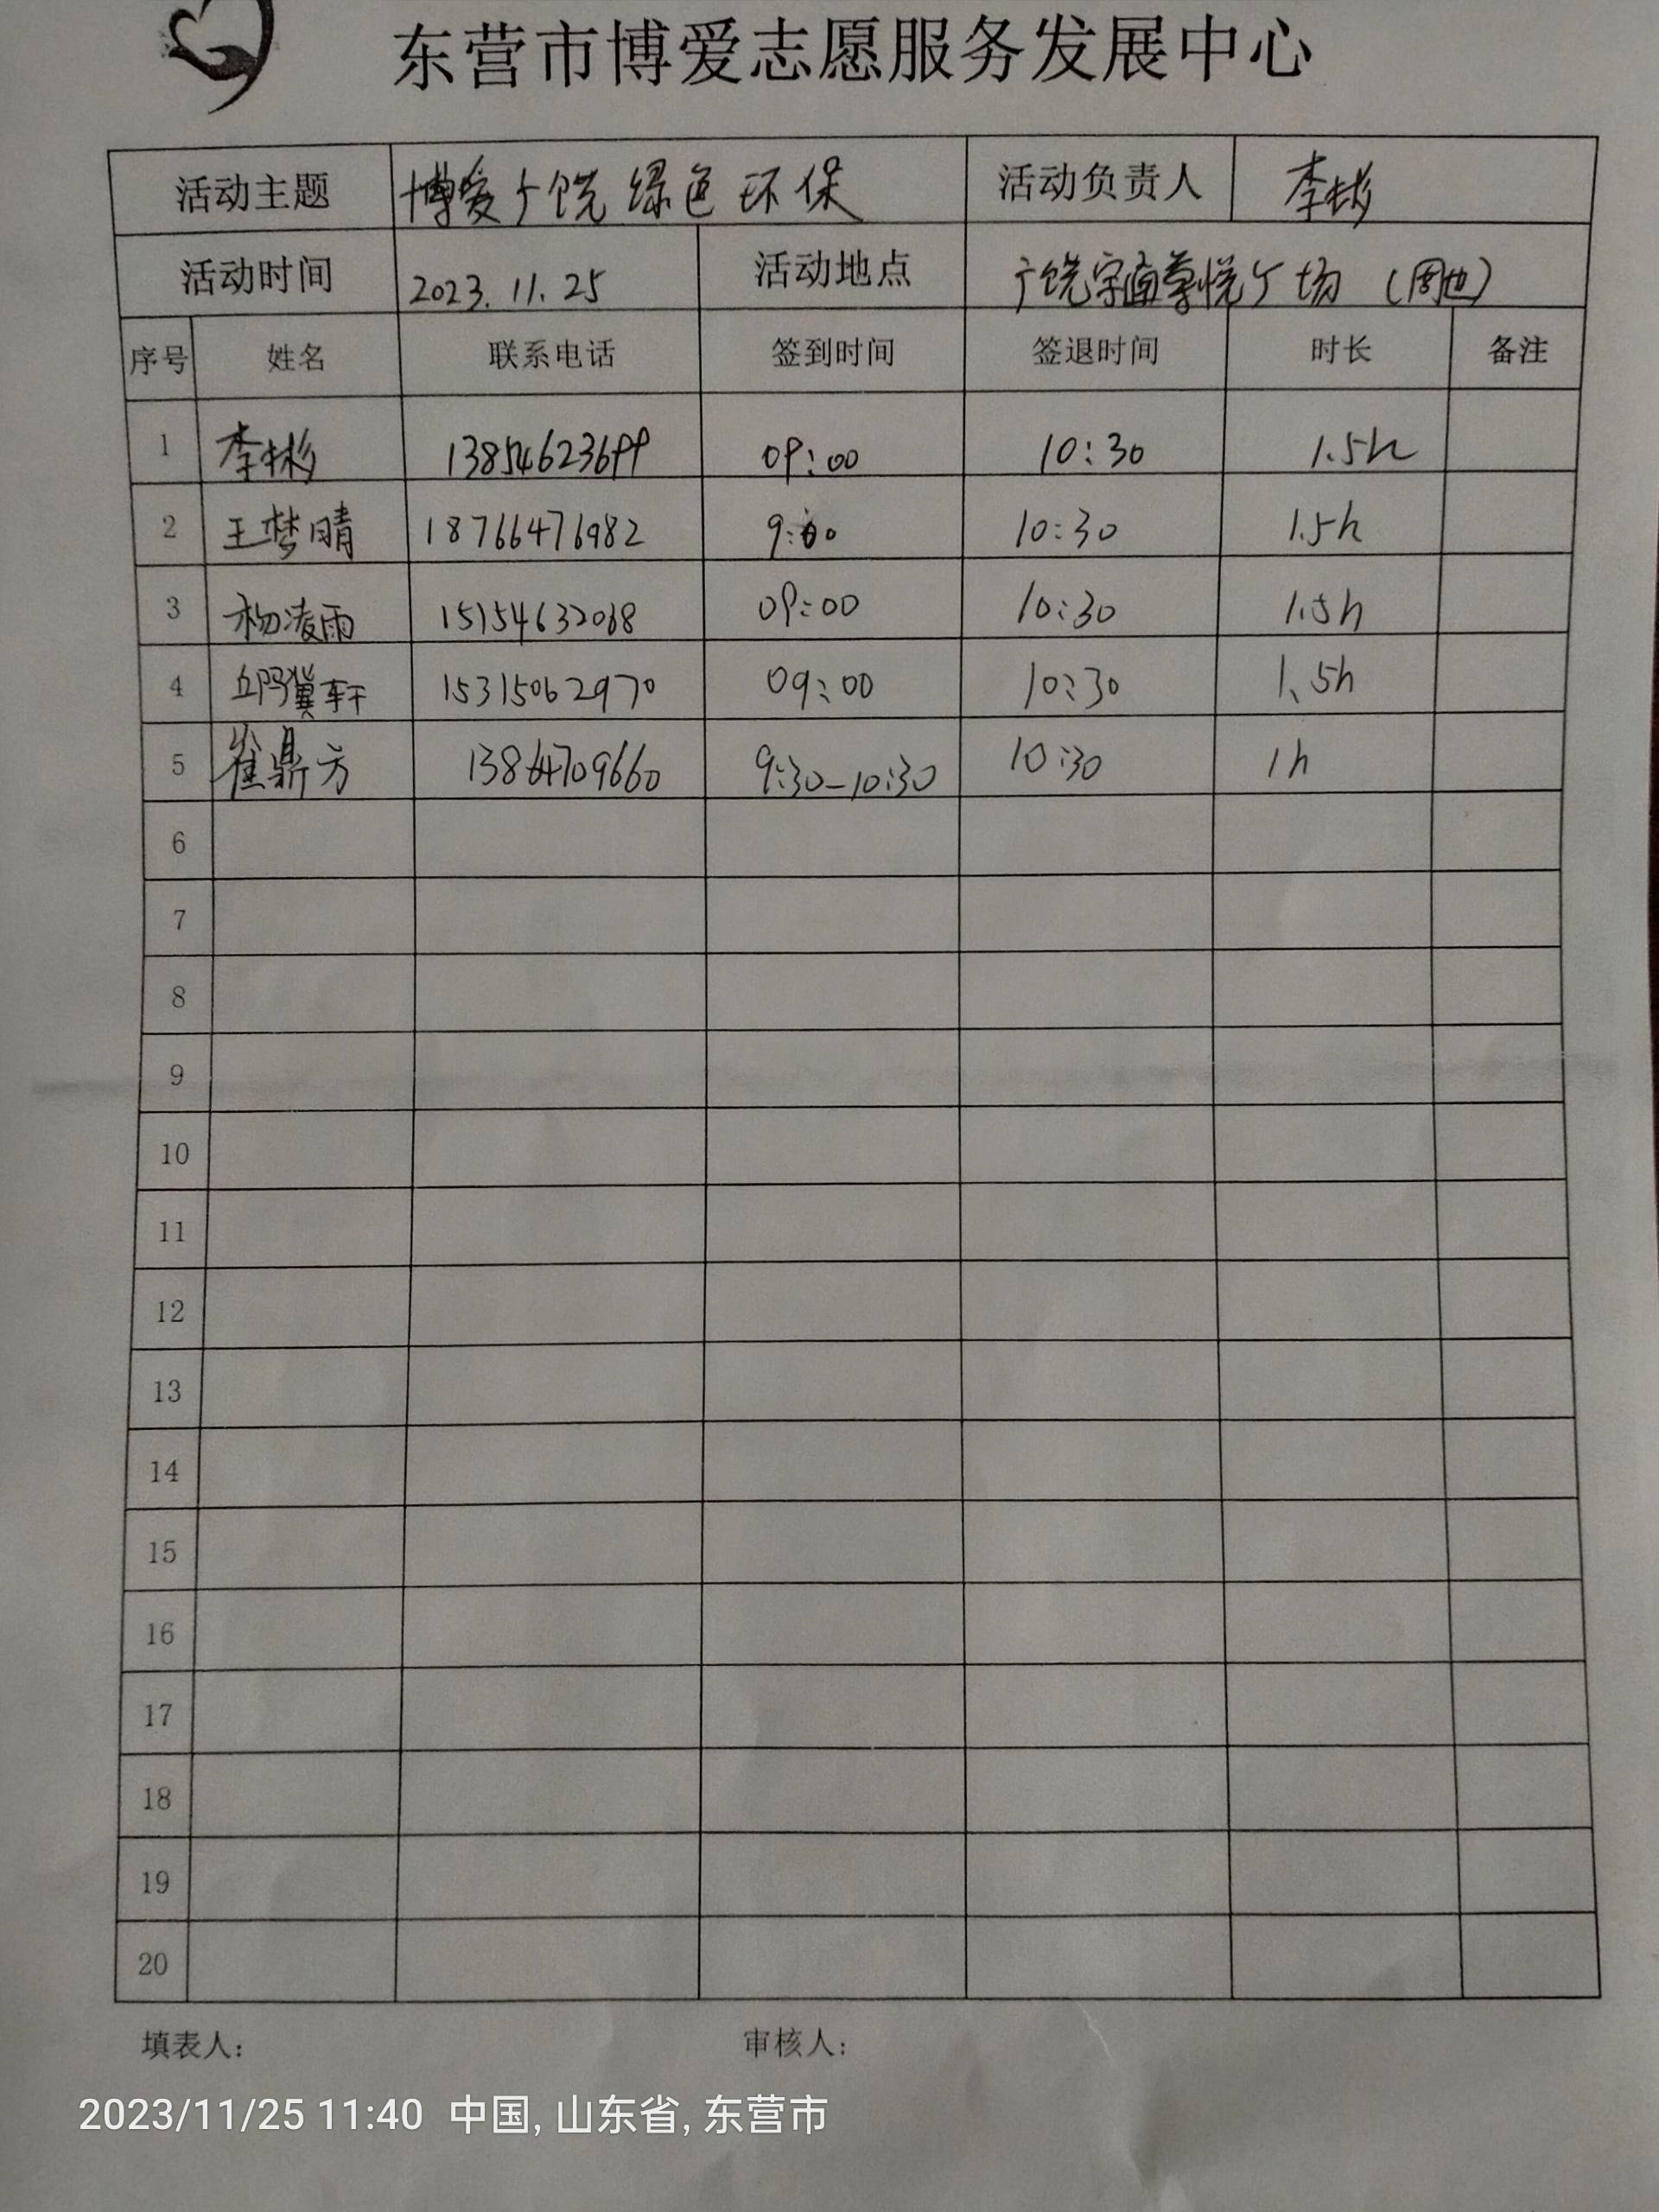 东营市博爱志愿服务发展中心
活动主题 博爱广饶 绿色环保 活动负责人 李彬
活动时间 2023.11.25 活动地点 广饶 尊悦广场 (周边)
序号 姓名 联系电话 签到时间 签退时间 时长 备注
1 李彬 13854623699 09:00 10:30 1.5h
2 王梦晴 18766476982 9:00 10:30 1.5h
3 杨凌雨 15154632068 09:00 10:30 1.5h
4 冀轩 15315062970 09:00 10:30 1.5h
5 崔鼎方 13864709660 9:30-10:30 10:30 1h
6
7
8
9
10
11
12
13
14
15
16
17
18
19
20
填表人: 审核人:
2023/11/25 11:40 中国, 山东省, 东营市